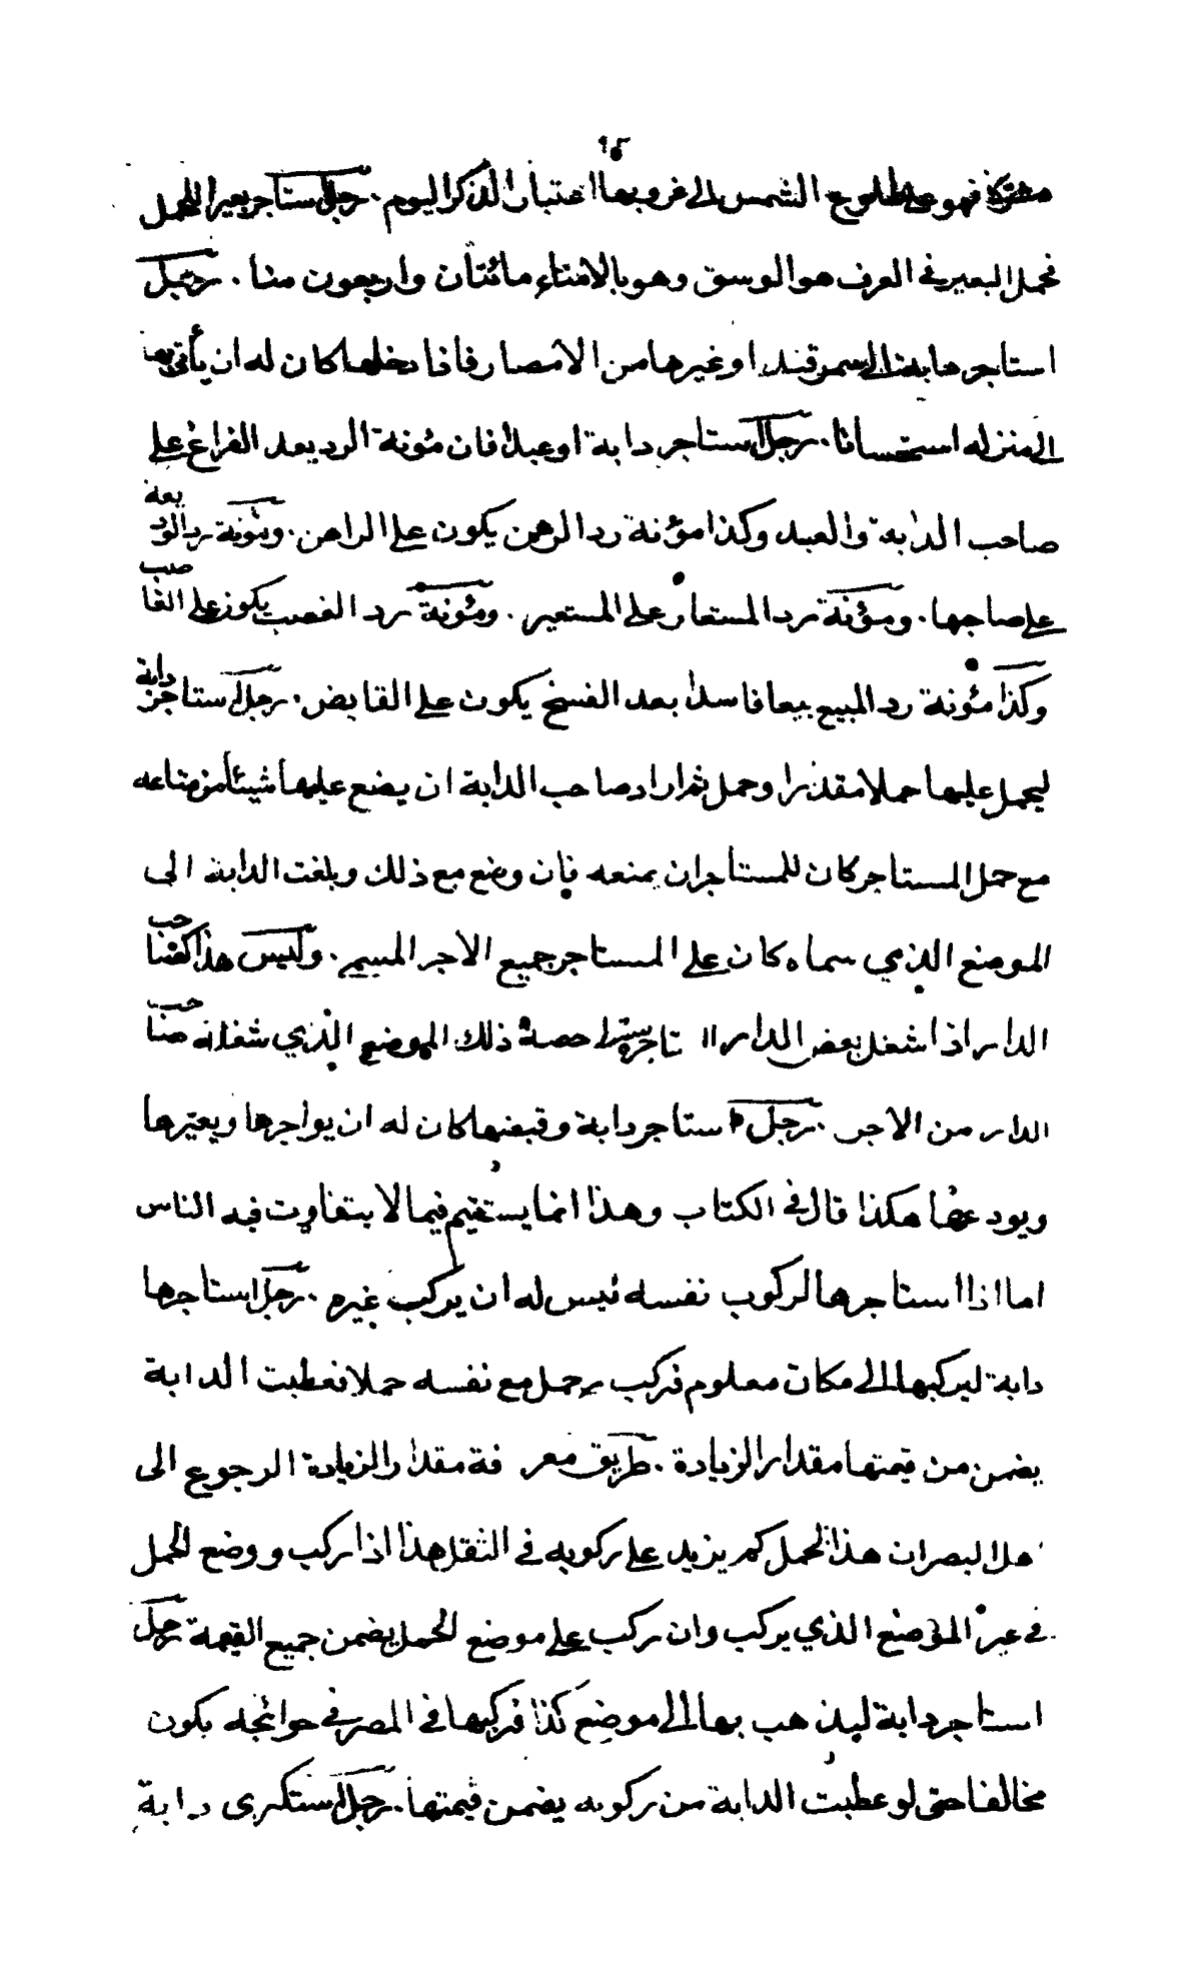 ٩٥
مشتركة فهو على طلوع الشمس الى غروبها اعتبارا لذكر اليوم . رجل استاجر بعيرا للحمل
فحمل البعير في العرف هو الوسق وهو بالامناء مائتان واربعون منا . رجل
استاجر دابة الى سمرقند او غيرها من الامصار فاذا دخلها كان له ان يأتي بها
الى منزله استحسانا . رجل استاجر دابة او عبدا فان مئونة الرد بعد الفراغ على
صاحب الدابة والعبد وكذا مؤنة رد الرهن يكون على الراهن . ومئونة رد الوديعة
على صاحبها . ومؤنة رد المستعار على المستعير . ومئونة رد الغصب يكون على الغاصب
وكذا مئونة رد المبيع بيعا فاسدا بعد الفسخ يكون على القابض . رجل استاجر دابة
ليحمل عليها حملا مقدرا وحمل ثم اراد صاحب الدابة ان يضع عليها شيئا من متاعه
مع حمل المستاجر كان للمستاجر ان يمنعه فان وضع مع ذلك وبلغت الدابة الى
الموضع الذي سماه كان على المستاجر جميع الاجر المسمى . وليس هذا كصاحب
الدار اذا شغل بعض الدار حصة ذلك الموضع الذي شغله صاحب
الدار من الاجر . رجل استاجر دابة وقبضها كان له ان يواجرها ويعيرها
ويودعها هكذا قال في الكتاب وهذا انما يستقيم فيما لا يتفاوت فيه الناس
اما اذا استاجرها لركوب نفسه ليس له ان يركب غيره . رجل استاجرها
دابة ليركبها الى مكان معلوم فركب وحمل مع نفسه حملا فعطبت الدابة
يضمن من قيمتها مقدار الزيادة . طريق معرفة مقدار الزيادة الرجوع الى
اهل البصر ان هذا الحمل كم يزيد على ركوبه في الثقل هذا اذا ركب ووضع الحمل
في غير الموضع الذي يركب وان ركب على موضع الحمل يضمن جميع القيمة رجل
استاجر دابة ليذهب بها الى موضع كذا فركبها في المصر في حوائجه يكون
مخالفا حتى لو عطبت الدابة من ركوبه يضمن قيمتها . رجل استكرى دابة